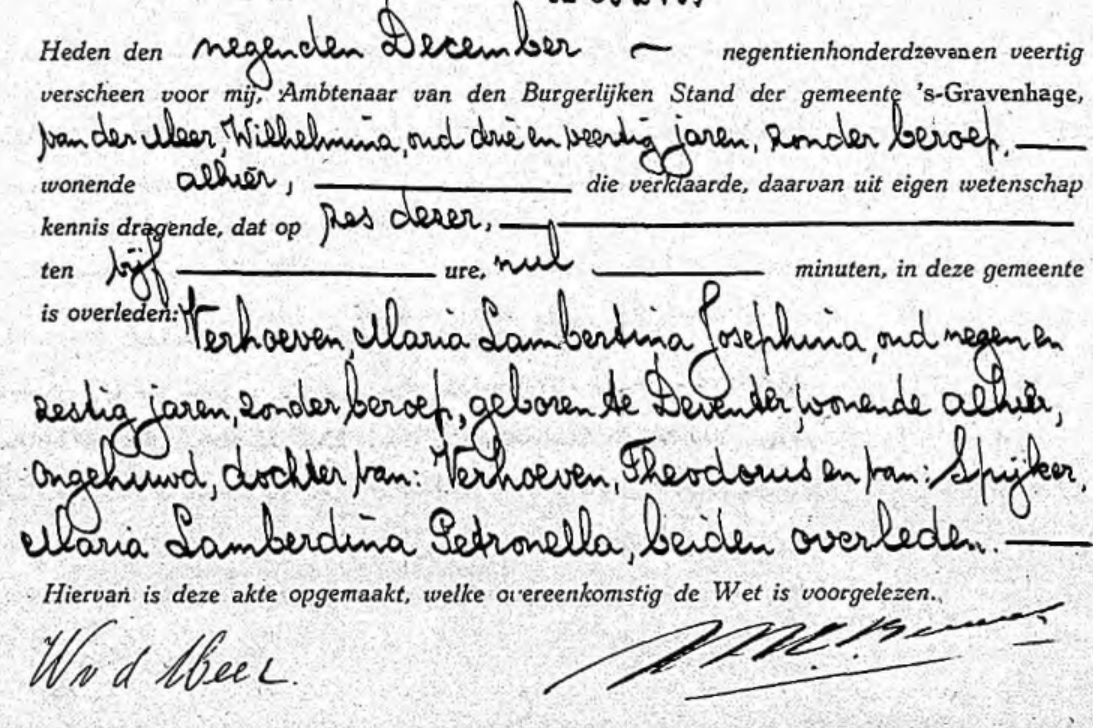 Heden den negenden December — negentienhonderdzevenen veertig
verscheen voor mij, Ambtenaar van den Burgerlijken Stand der gemeente 's-Gravenhage,
van der Meer, Wilhelmina, oud drie en veertig jaren, zonder beroep,
wonende alhier, die verklaarde, daarvan uit eigen wetenschap
kennis dragende, dat op zes dezer,
ten vijf ure, nul minuten, in deze gemeente
is overleden: Verhoeven, Maria Lambertina Josephina, oud negen en
zestig jaren, zonder beroep, geboren te Deventer, wonende alhier,
ongehuwd, dochter van: Verhoeven, Theodorus en van: Spijker,
Maria Lamberdina Petronella, beiden overleden.
Hiervan is deze akte opgemaakt, welke overeenkomstig de Wet is voorgelezen.
W v d Meer.